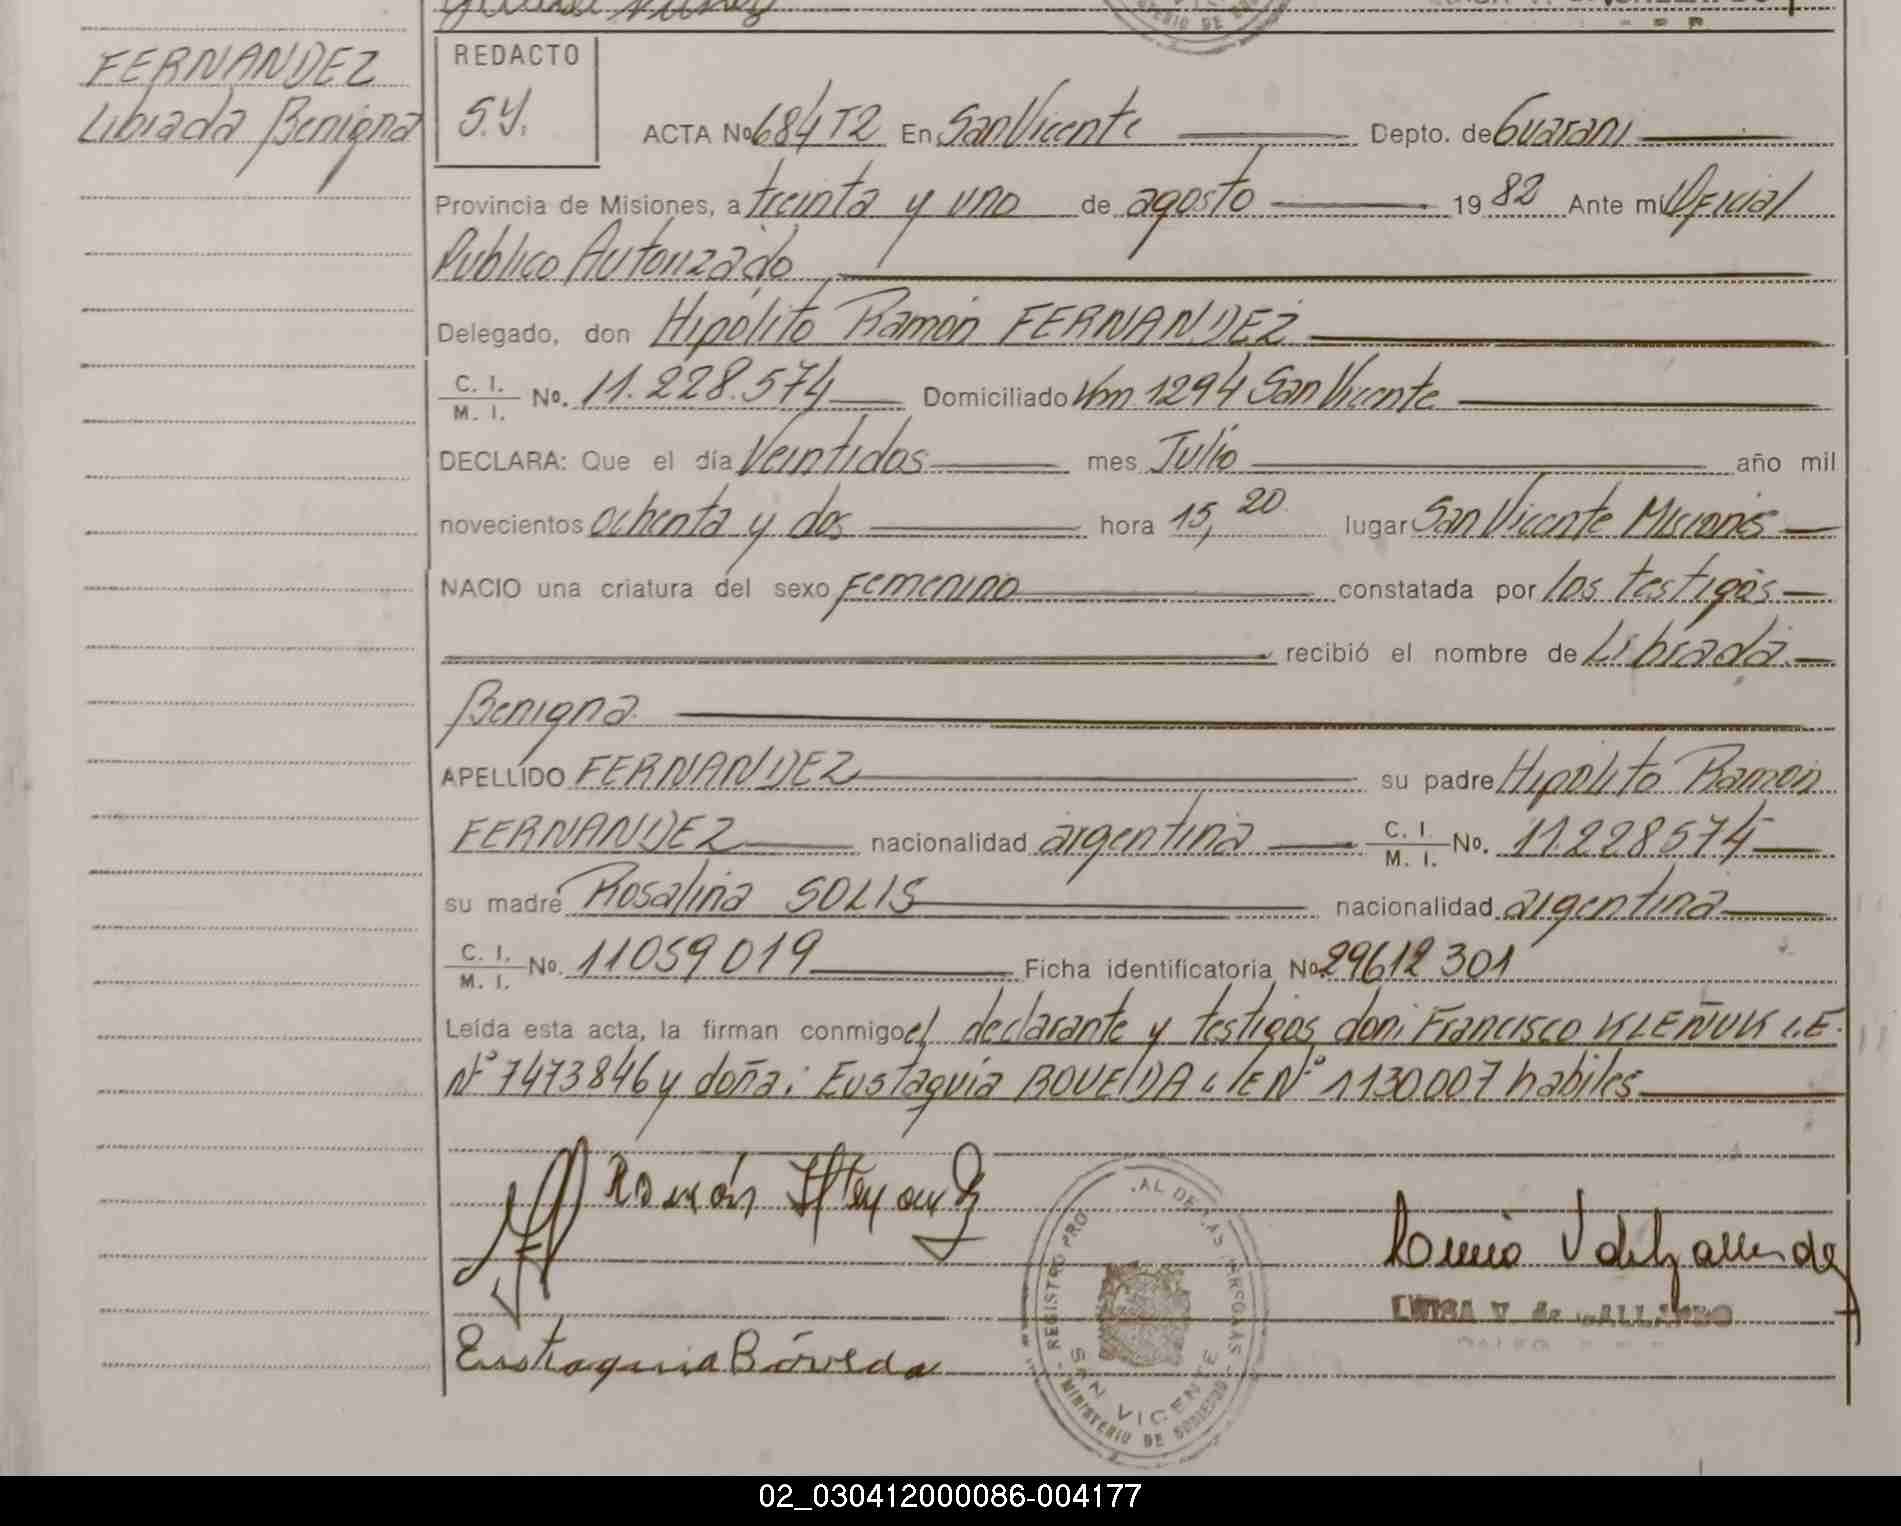 FERNANDEZ
Librada Benigna
REDACTO
S.Y.
ACTA No 684 T2 En San Vicente Depto. de Guarani
Provincia de Misiones, a treinta y uno de agosto 1982 Ante mi Oficial
Publico Autorizado
Delegado, don Hipólito Ramón FERNANDEZ
C. I. / M. I. No. 11.228.574 Domiciliado Km 1294 San Vicente
DECLARA: Que el día Veintidos mes Julio año mil
novecientos ochenta y dos hora 15,20 lugar San Vicente Misiones
NACIO una criatura del sexo Femenino constatada por los testigos
recibió el nombre de Librada
Benigna
APELLIDO FERNANDEZ su padre Hipólito Ramón
FERNANDEZ nacionalidad argentina C. I. / M. I. No. 11228574
su madre Rosalina SOLIS nacionalidad argentina
C. I. / M. I. No. 11059019 Ficha identificatoria No. 29612301
Leída esta acta, la firman conmigo el declarante y testigos don: Francisco KLEÑUK L.E.
Nº 7473846 y doña: Eustaquia BOVEDA LE Nº 1130007 habiles
Ramón
Eustaquia Bóveda
LUISA V. de GALLARDO
REGISTRO PRO AL DE LAS PERSONAS
SAN VICENTE
MINISTERIO DE GOBIERNO
02_030412000086-004177